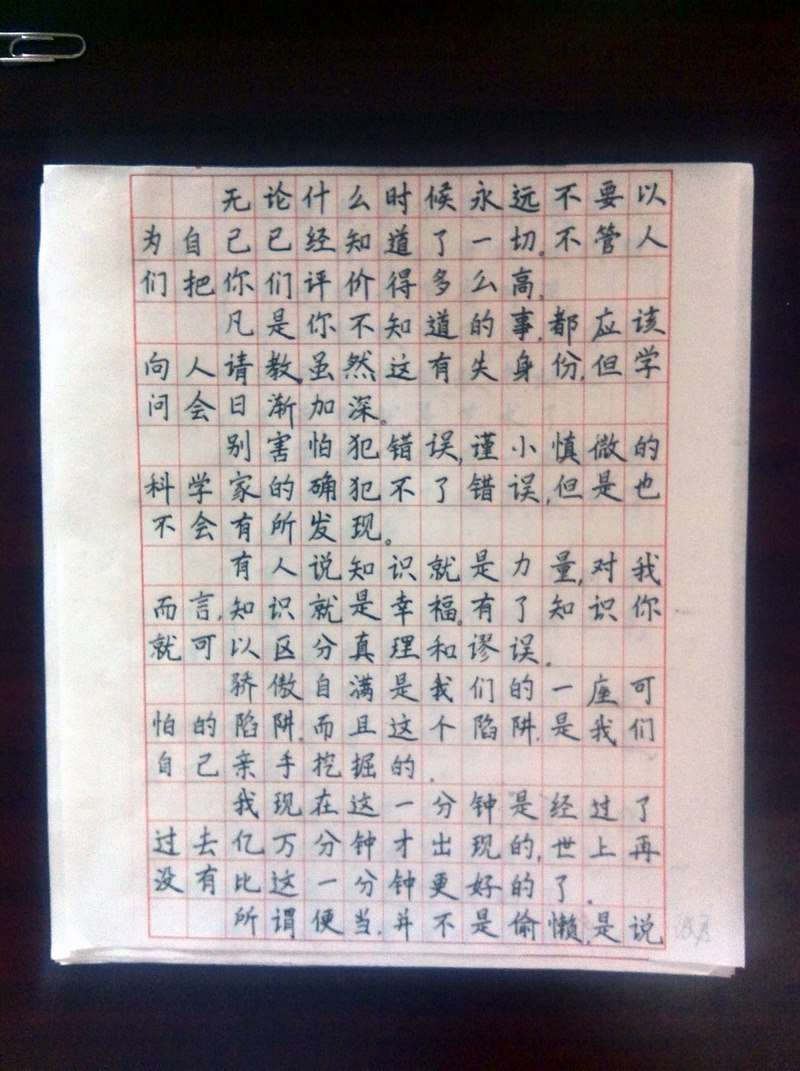 无论什么时候永远不要以
为自己已经知道了一切,不管人
们把你们评价得多么高,
凡是你不知道的事,都应该
向人请教,虽然这有失身份,但学
问会日渐加深。
别害怕犯错误,谨小慎微的
科学家的确犯不了错误,但是也
不会有所发现。
有人说知识就是力量,对我
而言,知识就是幸福,有了知识你
就可以区分真理和谬误。
骄傲自满是我们的一座可
怕的陷阱,而且这个陷阱,是我们
自己亲手挖掘的.
我现在这一分钟是经过了
过去亿万分钟才出现的,世上再
没有比这一分钟更好的了.
所谓便当,并不是偷懒,是说